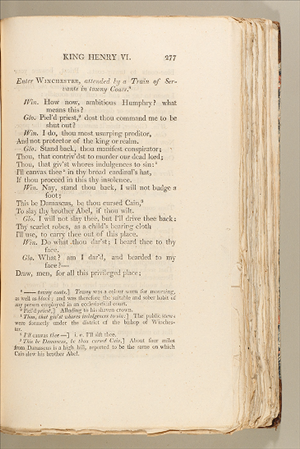 KING HENRY VI. 277
Enter WINCHESTER, attended by a Train of Ser-
vants in tawny Coats.⁸
Win. How now, ambitious Humphry? what
means this?
Glo. Piel'd priest,⁹ dost thou command me to be
shut out?
Win. I do, thou most usurping proditor,
And not protector of the king or realm.
Glo. Stand back, thou manifest conspirator;
Thou, that contriv'dst to murder our dead lord;
Thou, that giv'st whores indulgences to sin:
I'll canvas thee in thy broad cardinal's hat,
If thou proceed in this thy insolence.
Win. Nay, stand thou back, I will not budge a
foot;
This be Damascus, be thou cursed Cain,
To slay thy brother Abel, if thou wilt.
Glo. I will not slay thee, but I'll drive thee back:
Thy scarlet robes, as a child's bearing cloth
I'll use, to carry thee out of this place.
Win. Do what thou dar'st; I beard thee to thy
face.
Glo. What? am I dar'd, and bearded to my
face?—
Draw, men, for all this privileged place;
⁸ —— tawny coats.] Tawny was a colour worn for mourning,
as well as black; and was therefore the suitable and sober habit of
any person employed in an ecclesiastical court.
⁹ Piel'd priest,] Alluding to his shaven crown.
Thou, that giv'st whores indulgences to sin:] The public stews
were formerly under the district of the bishop of Winches-
ter.
I'll canvas thee—] i. e. I'll sift thee.
This be Damascus, be thou cursed Cain,] About four miles
from Damascus is a high hill, reported to be the same on which
Cain slew his brother Abel.